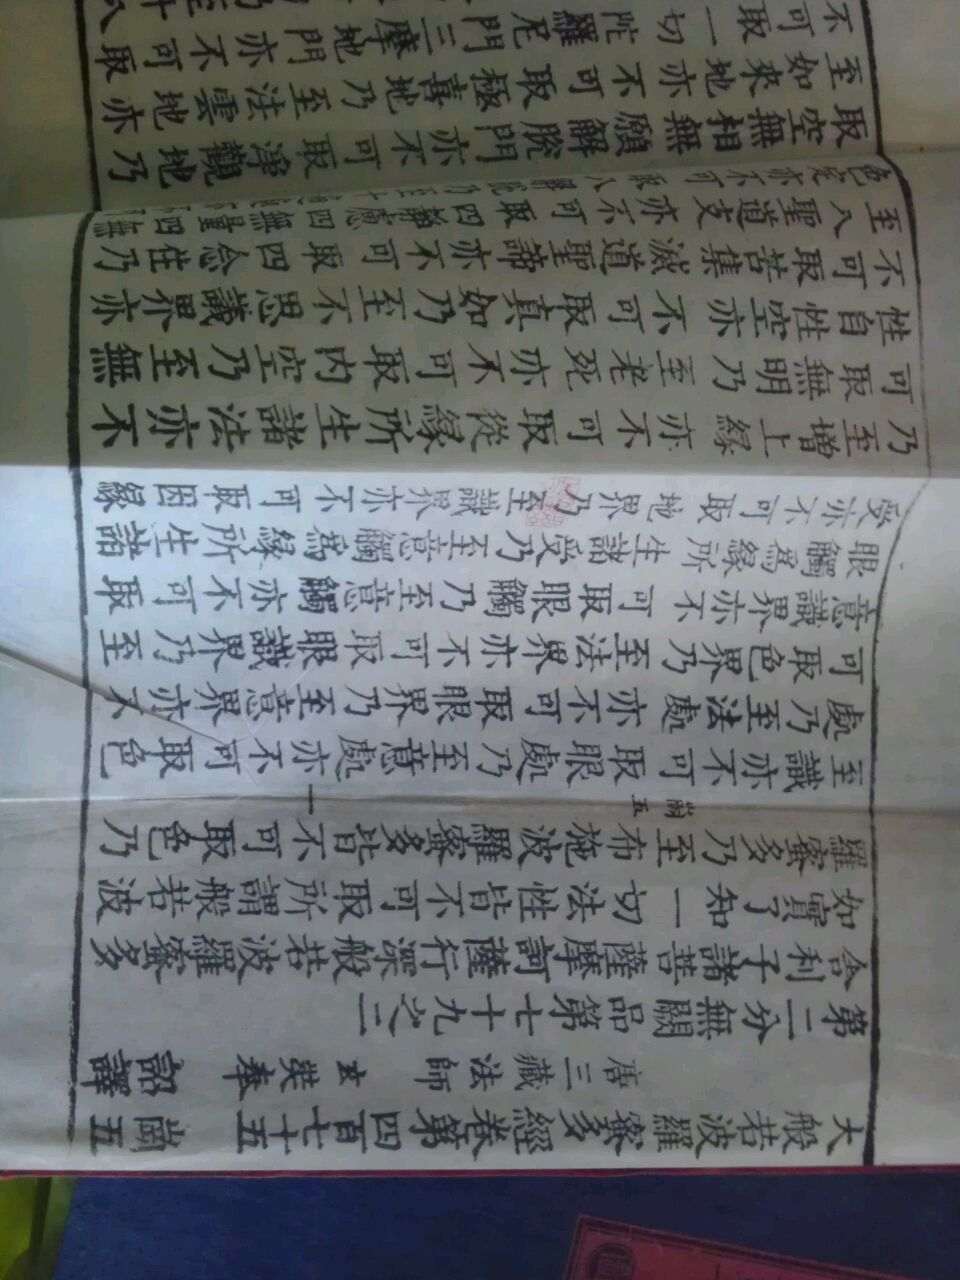 大般若波羅蜜多經卷第四百七十五 崗五
唐三藏法師玄奘奉 詔譯
第二分無闕品第七十九之二
舍利子諸菩薩摩訶薩行深般若波羅蜜多
如實了知一切法性皆不可取所謂般若波
羅蜜多乃至布施波羅蜜多皆不可取色乃
崗五 一
至識亦不可取眼處乃至意處亦不可取色
處乃至法處亦不可取眼界乃至意界亦不
可取色界乃至法界亦不可取眼識界乃至
意識界亦不可取眼觸乃至意觸亦不可取
眼觸爲緣所生諸受乃至意觸爲緣所生諸
受亦不可取地界乃至識界亦不可取因緣
乃至增上緣亦不可取從緣所生諸法亦不
可取無明乃至老死亦不可取內空乃至無
性自性空亦不可取真如乃至不思議界亦
不可取苦集滅道聖諦亦不可取四念住乃
至八聖道支亦不可取四靜慮四無量四無
色定亦不可取八解脫乃至十
取空無相無願解脫門亦不可取淨觀地乃
至如來地亦不可取極喜地乃至法雲地亦
不可取一切陀羅尼門三摩地門亦不可取